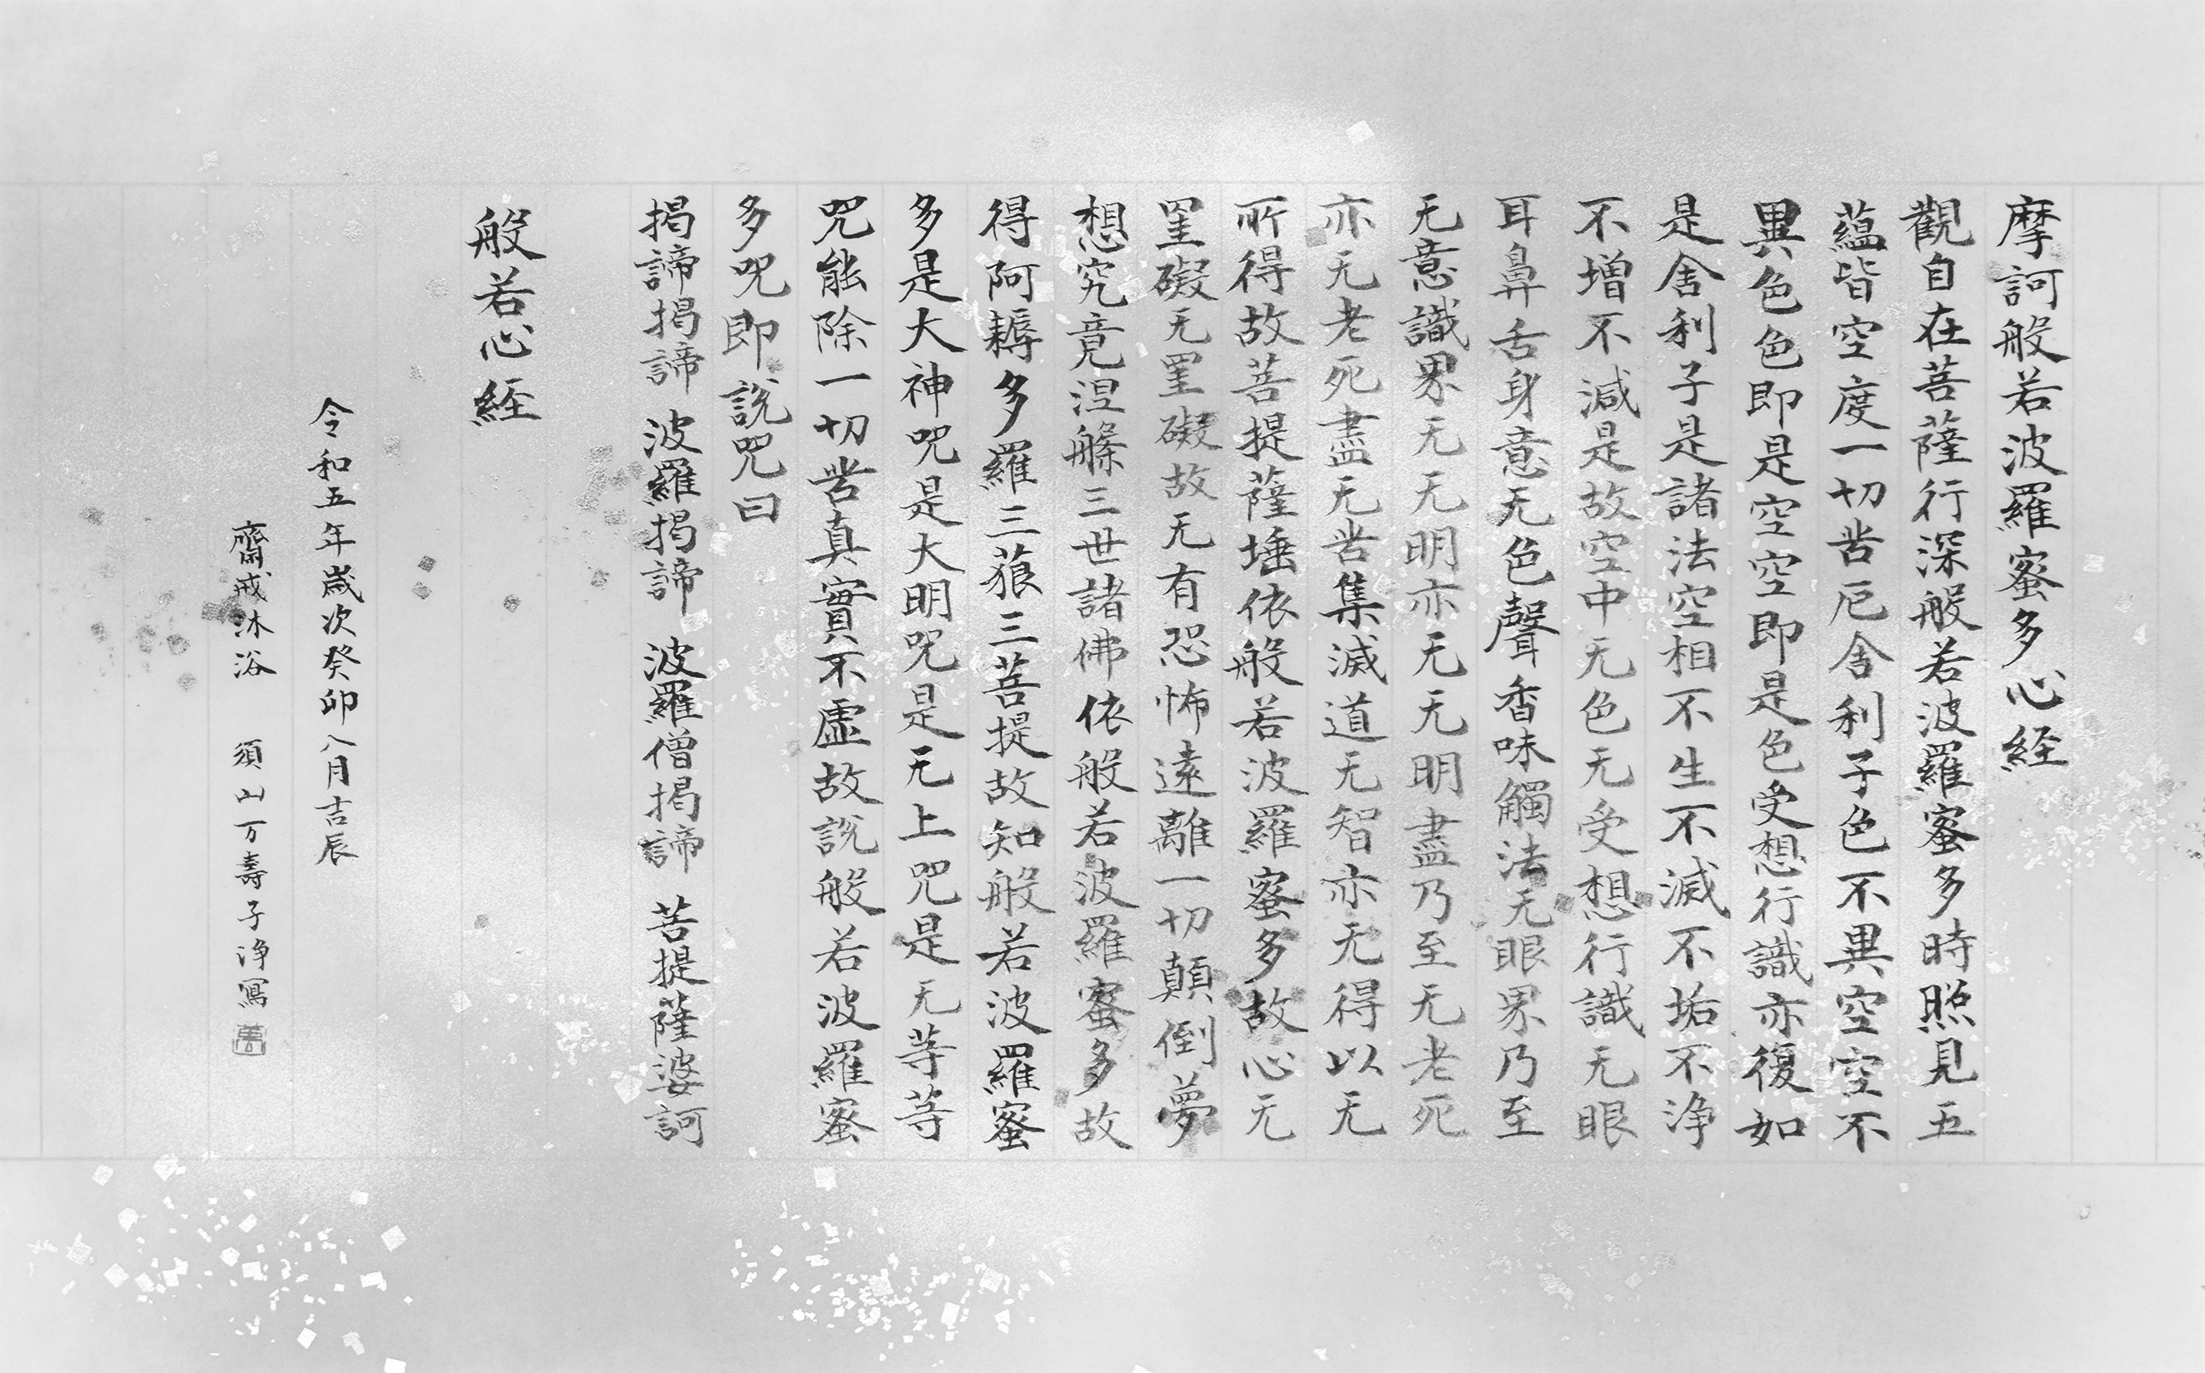 摩訶般若波羅蜜多心経
觀自在菩薩行深般若波羅蜜多時照見五
蘊皆空度一切苦厄舎利子色不異空空不
異色色即是空空即是色受想行識亦復如
是舎利子是諸法空相不生不滅不垢不浄
不増不減是故空中无色无受想行識无眼
耳鼻舌身意无色聲香味觸法无眼界乃至
无意識界无无明亦无无明盡乃至无老死
亦无老死盡无苦集滅道无智亦无得以无
所得故菩提薩埵依般若波羅蜜多故心无
罣礙无罣礙故无有恐怖遠離一切顛倒夢
想究竟涅槃三世諸佛依般若波羅蜜多故
得阿耨多羅三藐三菩提故知般若波羅蜜
多是大神呪是大明呪是无上呪是无等等
呪能除一切苦真實不虚故説般若波羅蜜
多呪即説呪曰
揭諦揭諦 波羅揭諦 波羅僧揭諦 菩提薩婆訶
般若心経
令和五年歳次癸卯八月吉辰
齋戒沐浴 須山万壽子浄寫